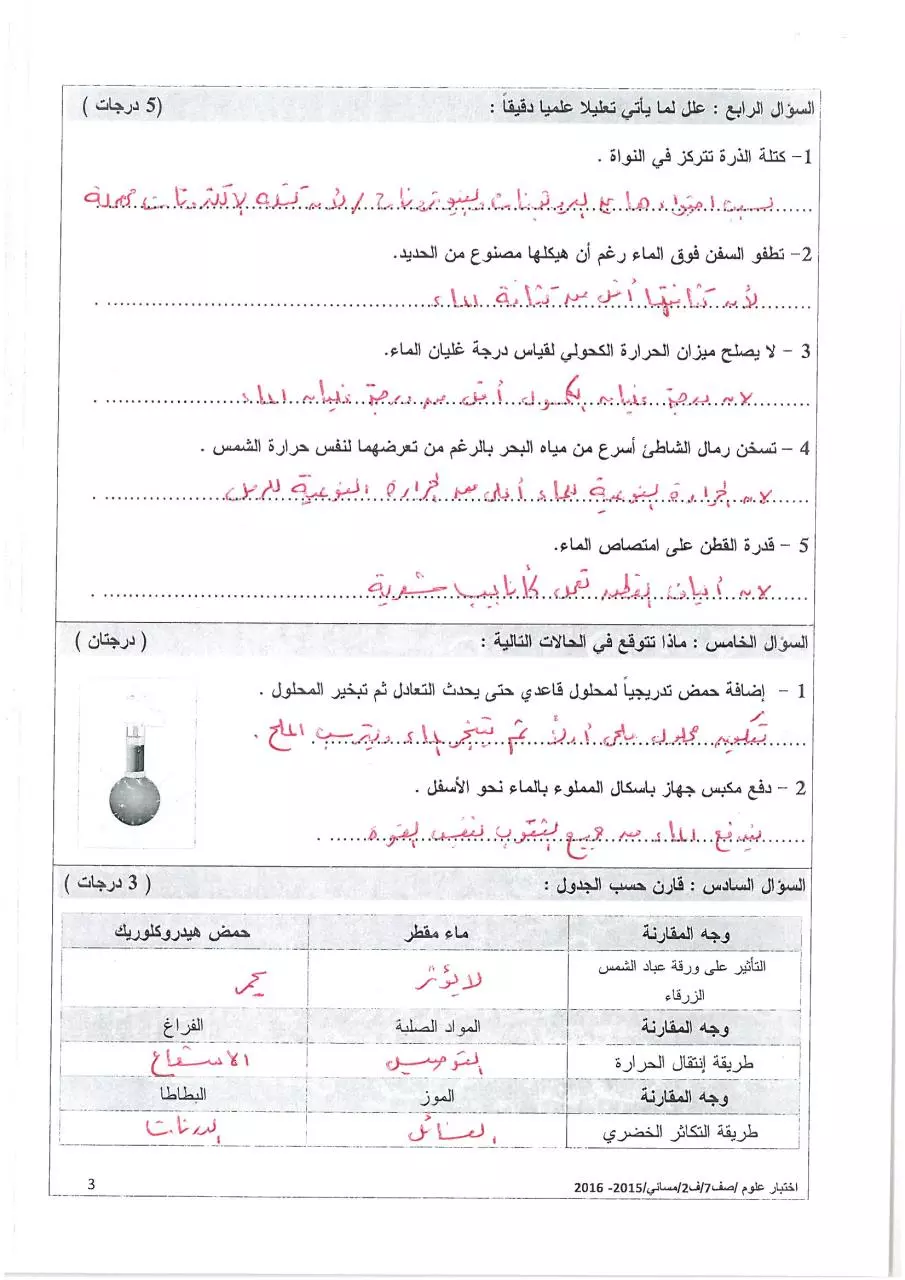 السؤال الرابع : علل لما يأتي تعليلا علميا دقيقاً : (5 درجات )
1- كتلة الذرة تتركز في النواة .
بسبب احتواءها على البروتينات والنيوترونات / لأن كتلة الإلكترونات مهملة
2- تطفو السفن فوق الماء رغم أن هيكلها مصنوع من الحديد.
لأن كثافتها أقل من كثافة الماء
3 - لا يصلح ميزان الحرارة الكحولي لقياس درجة غليان الماء.
لان درجة غليان الكحول أقل من درجة غليان الماء
4 - تسخن رمال الشاطئ أسرع من مياه البحر بالرغم من تعرضهما لنفس حرارة الشمس .
لان الحرارة النوعية للماء أعلى من الحرارة النوعية للرمل
5 - قدرة القطن على امتصاص الماء.
لان ألياف القطن تعمل كأنابيب شعرية
السؤال الخامس : ماذا تتوقع في الحالات التالية : ( درجتان )
1 - إضافة حمض تدريجياً لمحلول قاعدي حتى يحدث التعادل ثم تبخير المحلول .
تكوين محلول ملحي أولاً ثم يتبخر الماء ويترسب الملح .
2 - دفع مكبس جهاز باسكال المملوء بالماء نحو الأسفل .
يندفع الماء من جميع الثقوب بنفس القوة
السؤال السادس : قارن حسب الجدول : ( 3 درجات )
وجه المقارنة ماء مقطر حمض هيدروكلوريك
التأثير على ورقة عباد الشمس
الزرقاء لا يؤثر يحمر
وجه المقارنة المواد الصلبة الفراغ
طريقة إنتقال الحرارة التوصيل الاشعاع
وجه المقارنة الموز البطاطا
طريقة التكاثر الخضري الفسائل الدرنات
اختبار علوم /صف7/ف2/مسائي/2015- 2016 3